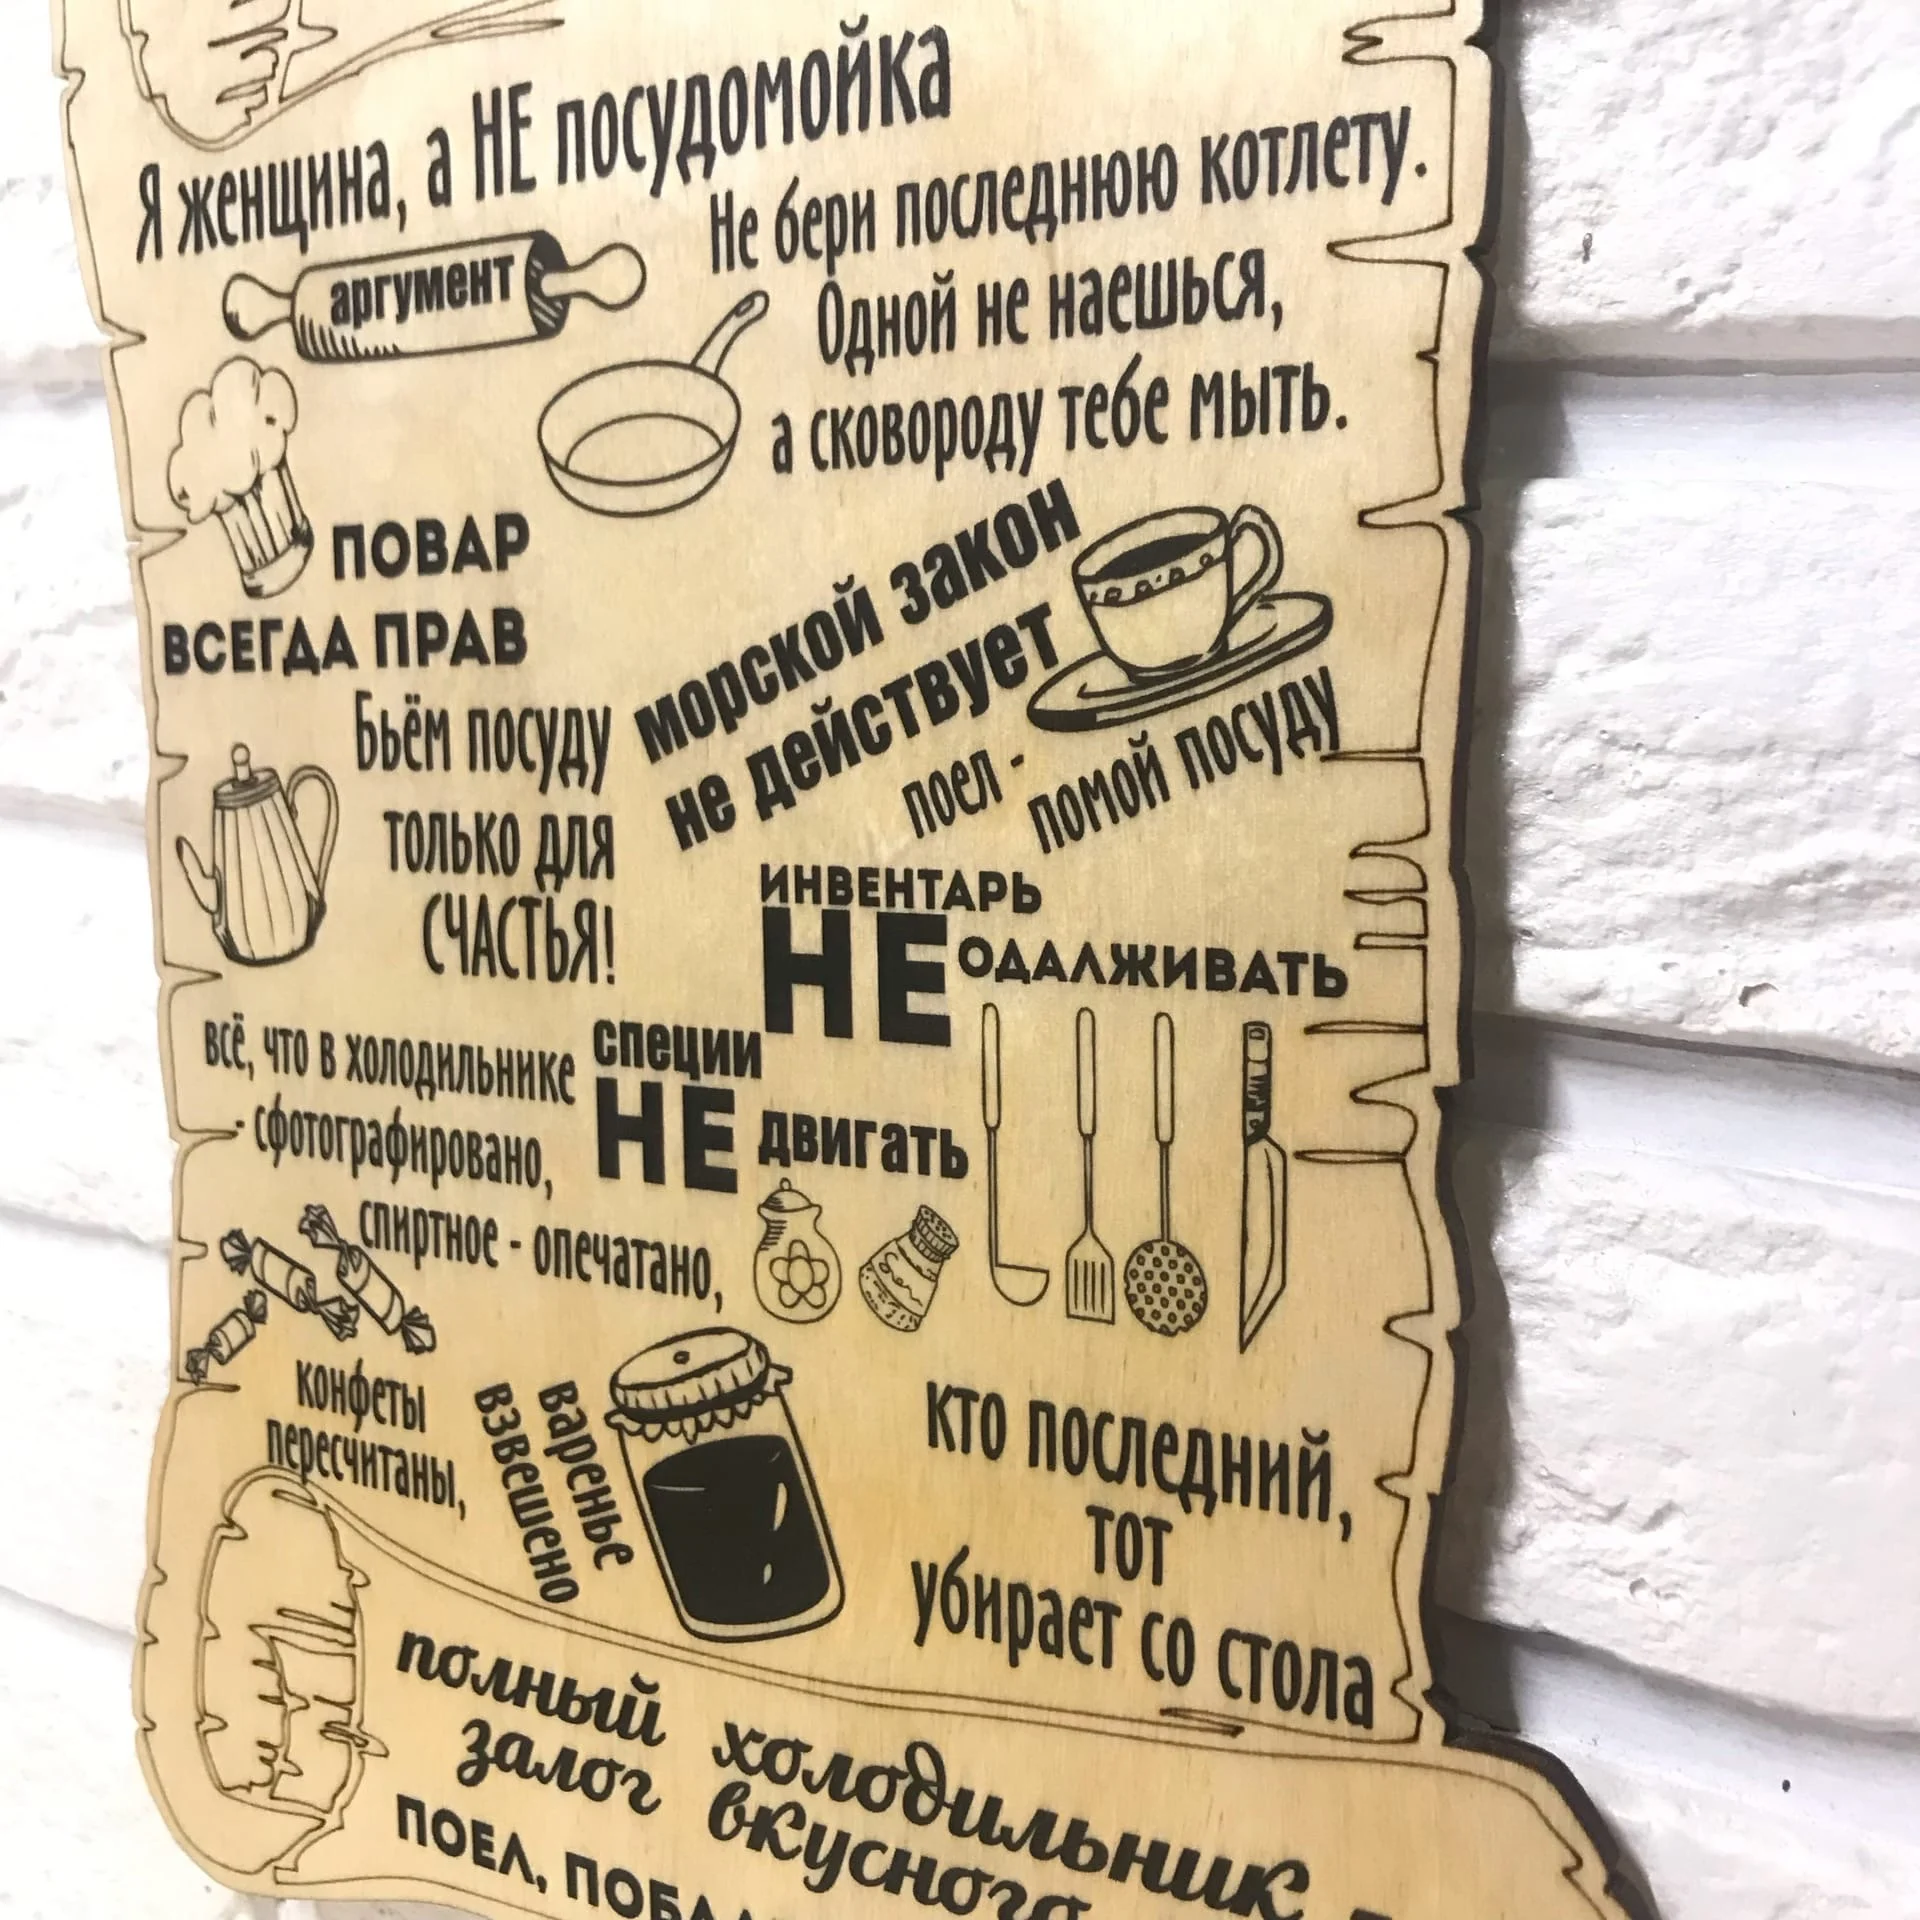 Я женщина, а НЕ посудомойка
аргумент
Не бери последнюю котлету.
Одной не наешься,
а сковороду тебе мыть.
ПОВАР
ВСЕГДА ПРАВ
морской закон
не действует
поел -
помой посуду
Бьём посуду
только для
СЧАСТЬЯ!
ИНВЕНТАРЬ
НЕ ОДАЛЖИВАТЬ
всё, что в холодильнике
- сфотографировано,
спиртное - опечатано,
специи
НЕ двигать
конфеты
пересчитаны,
варенье
взвешено
кто последний,
тот
убирает со стола
полный холодильник
залог вкусного
ПОЕЛ,